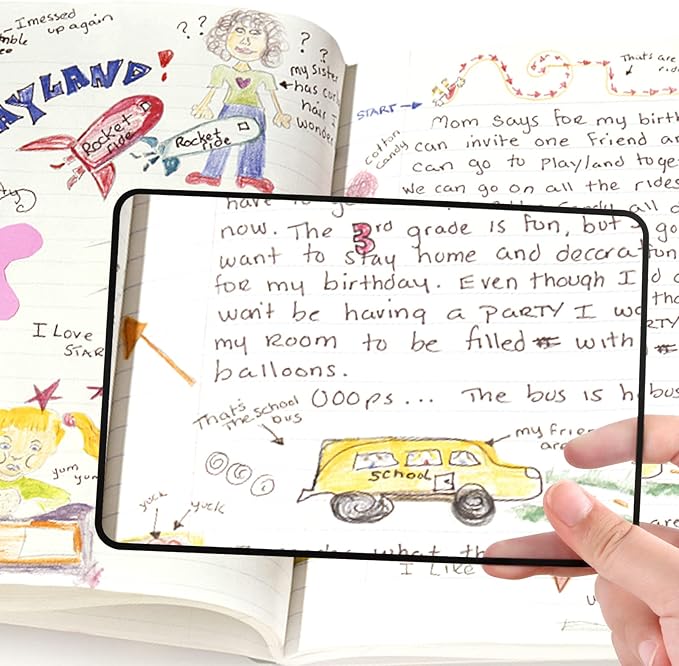 I messed
up again
AYLAND!
Rocket
ride
Rocket
ride
? ?
? ?
my sister
has curl
hair I
wonder
I Love
STAR
yum
yum
That's are
ride
START
cotton
candy
Mom says for my birth
can invite one friend an
can go to Playland toge
We can go on all the rides
all d
now. The 3rd grade is fun, but
want to stay home and decora
for my birthday. Even though I
won't be having a PARTY I wo
my room to be filled with
balloons.
OOOps... The bus is h
That's
the school
bus
my frie
are
school
yuck
yuck
what th
I Like
go
fun
d
tho
RTY
bus
are